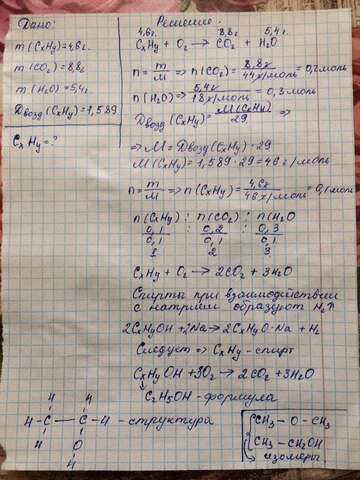 Дано:
m(CxHy)=4,6г.
m(CO₂)=8,8г
m(H₂O)=5,4г.
Dвозд(CxHy)=1,589
CxHy=?
Решение.
4,6г. 8,8г. 5,4г.
CxHy + O₂ → CO₂ + H₂O
n = m/M ⇒ n(CO₂) = 8,8г/44г/моль = 0,2моль
n(H₂O) = 5,4г/18г/моль = 0,3моль
Dвозд(CxHy) = M(CxHy)/29 ⇒
⇒ M = Dвозд(CxHy)·29
M(CxHy) = 1,589·29 = 46г/моль
n = m/M ⇒ n(CxHy) = 4,6г/46г/моль = 0,1моль
n(CxHy) : n(CO₂) : n(H₂O
0,1/0,1 : 0,2/0,1 : 0,3/0,1
1 2 3
CxHy + O₂ → 2CO₂ + 3H₂O
Спирты при взаимодействии
с натрием образуют H₂↑
2CxHyOH + 2Na → 2CxHyO·Na + H₂
Следует ⇒ CxHy - спирт
CxHyOH + 3O₂ → 2CO₂ + 3H₂O
↓
C₂H₅OH - формула
Ч Ч
Ч - C — C - Ч - структура
Ч O
Ч
CH₃ - O - CH₃
CH₃ - CH₂OH
изомеры